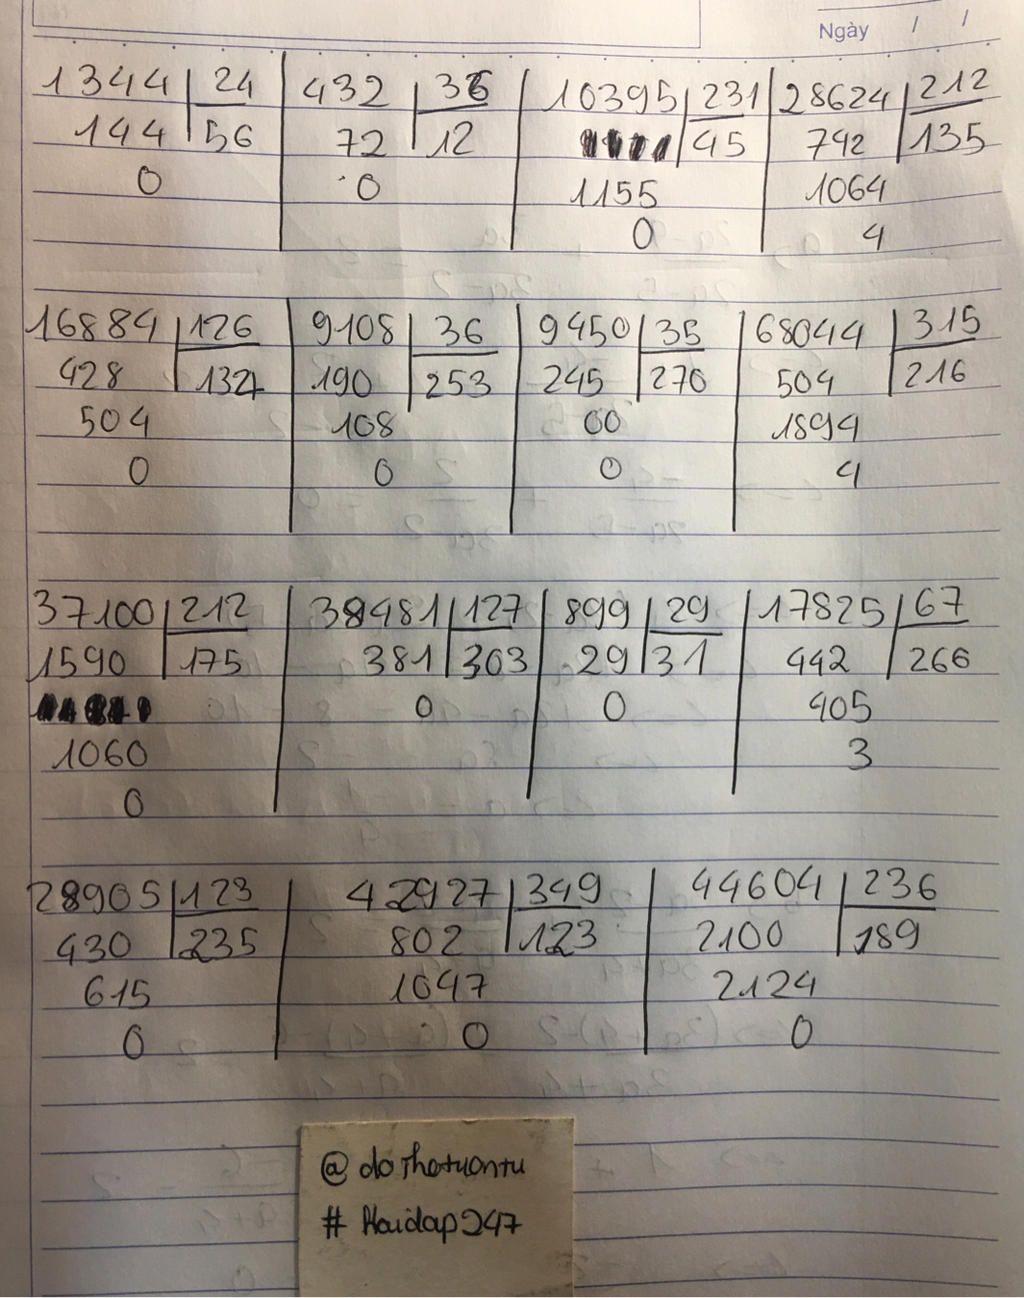 Ngày / /
1344 24 432 36 10395 231 28624 212
144 56 72 12 45 792 135
0 0 1155 1064
0 4
16884 126 9108 36 9450 35 68044 315
428 134 190 253 245 270 504 216
504 108 00 1894
0 0 0 4
37100 212 38481 127 899 29 17825 67
1590 175 381 303 29 31 442 266
0 0 405
1060 3
0
28905 123 42927 349 44604 236
430 235 802 123 2100 189
615 1047 2124
0 0 0
@ dothotuontu
# Hoidap247